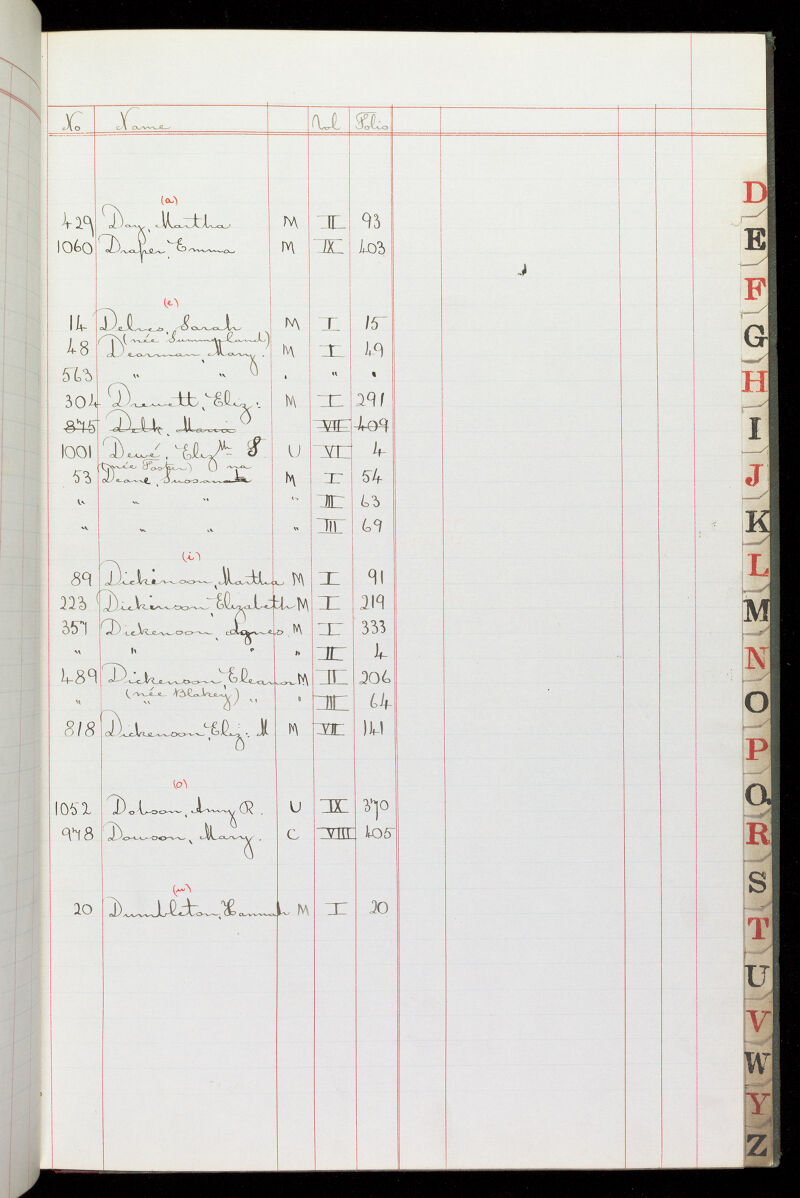 No Name Vol Folio
(a)
429 Day, Martha M II 93
1060 Draper, Emma M IX 403
(e)
14 Delves, Sarah M I 15
(née Summerland)
48 Dearman, Mary. M I 49
563 " " " " "
304 Drewett, Eliz: M I 291
875 Delk, Maria VII 409
1001 Dewé, Elizth S U VI 4
(née Foster) na
53 Deane, Susosanah M I 54
" " " " III 63
" " " " III 69
(i)
89 Dickinson, Martha M I 91
223 Dickinson, Elizabeth M I 219
357 Dickenson, Agnes M I 333
" " " " II 4
489 Dickenson, Eleanor M II 206
" (née Blakey) " " III 64
818 Dickenson, Eliz: M M VII 141
(o)
1052 Dobson, Amy R. U IX 370
978 Dowson, Mary. C VIII 405
(u)
20 Dumbleton, Hannah M I 20
D
E
F
G
H
I
J
K
L
M
N
O
P
Q
R
S
T
U
V
W
Y
Z